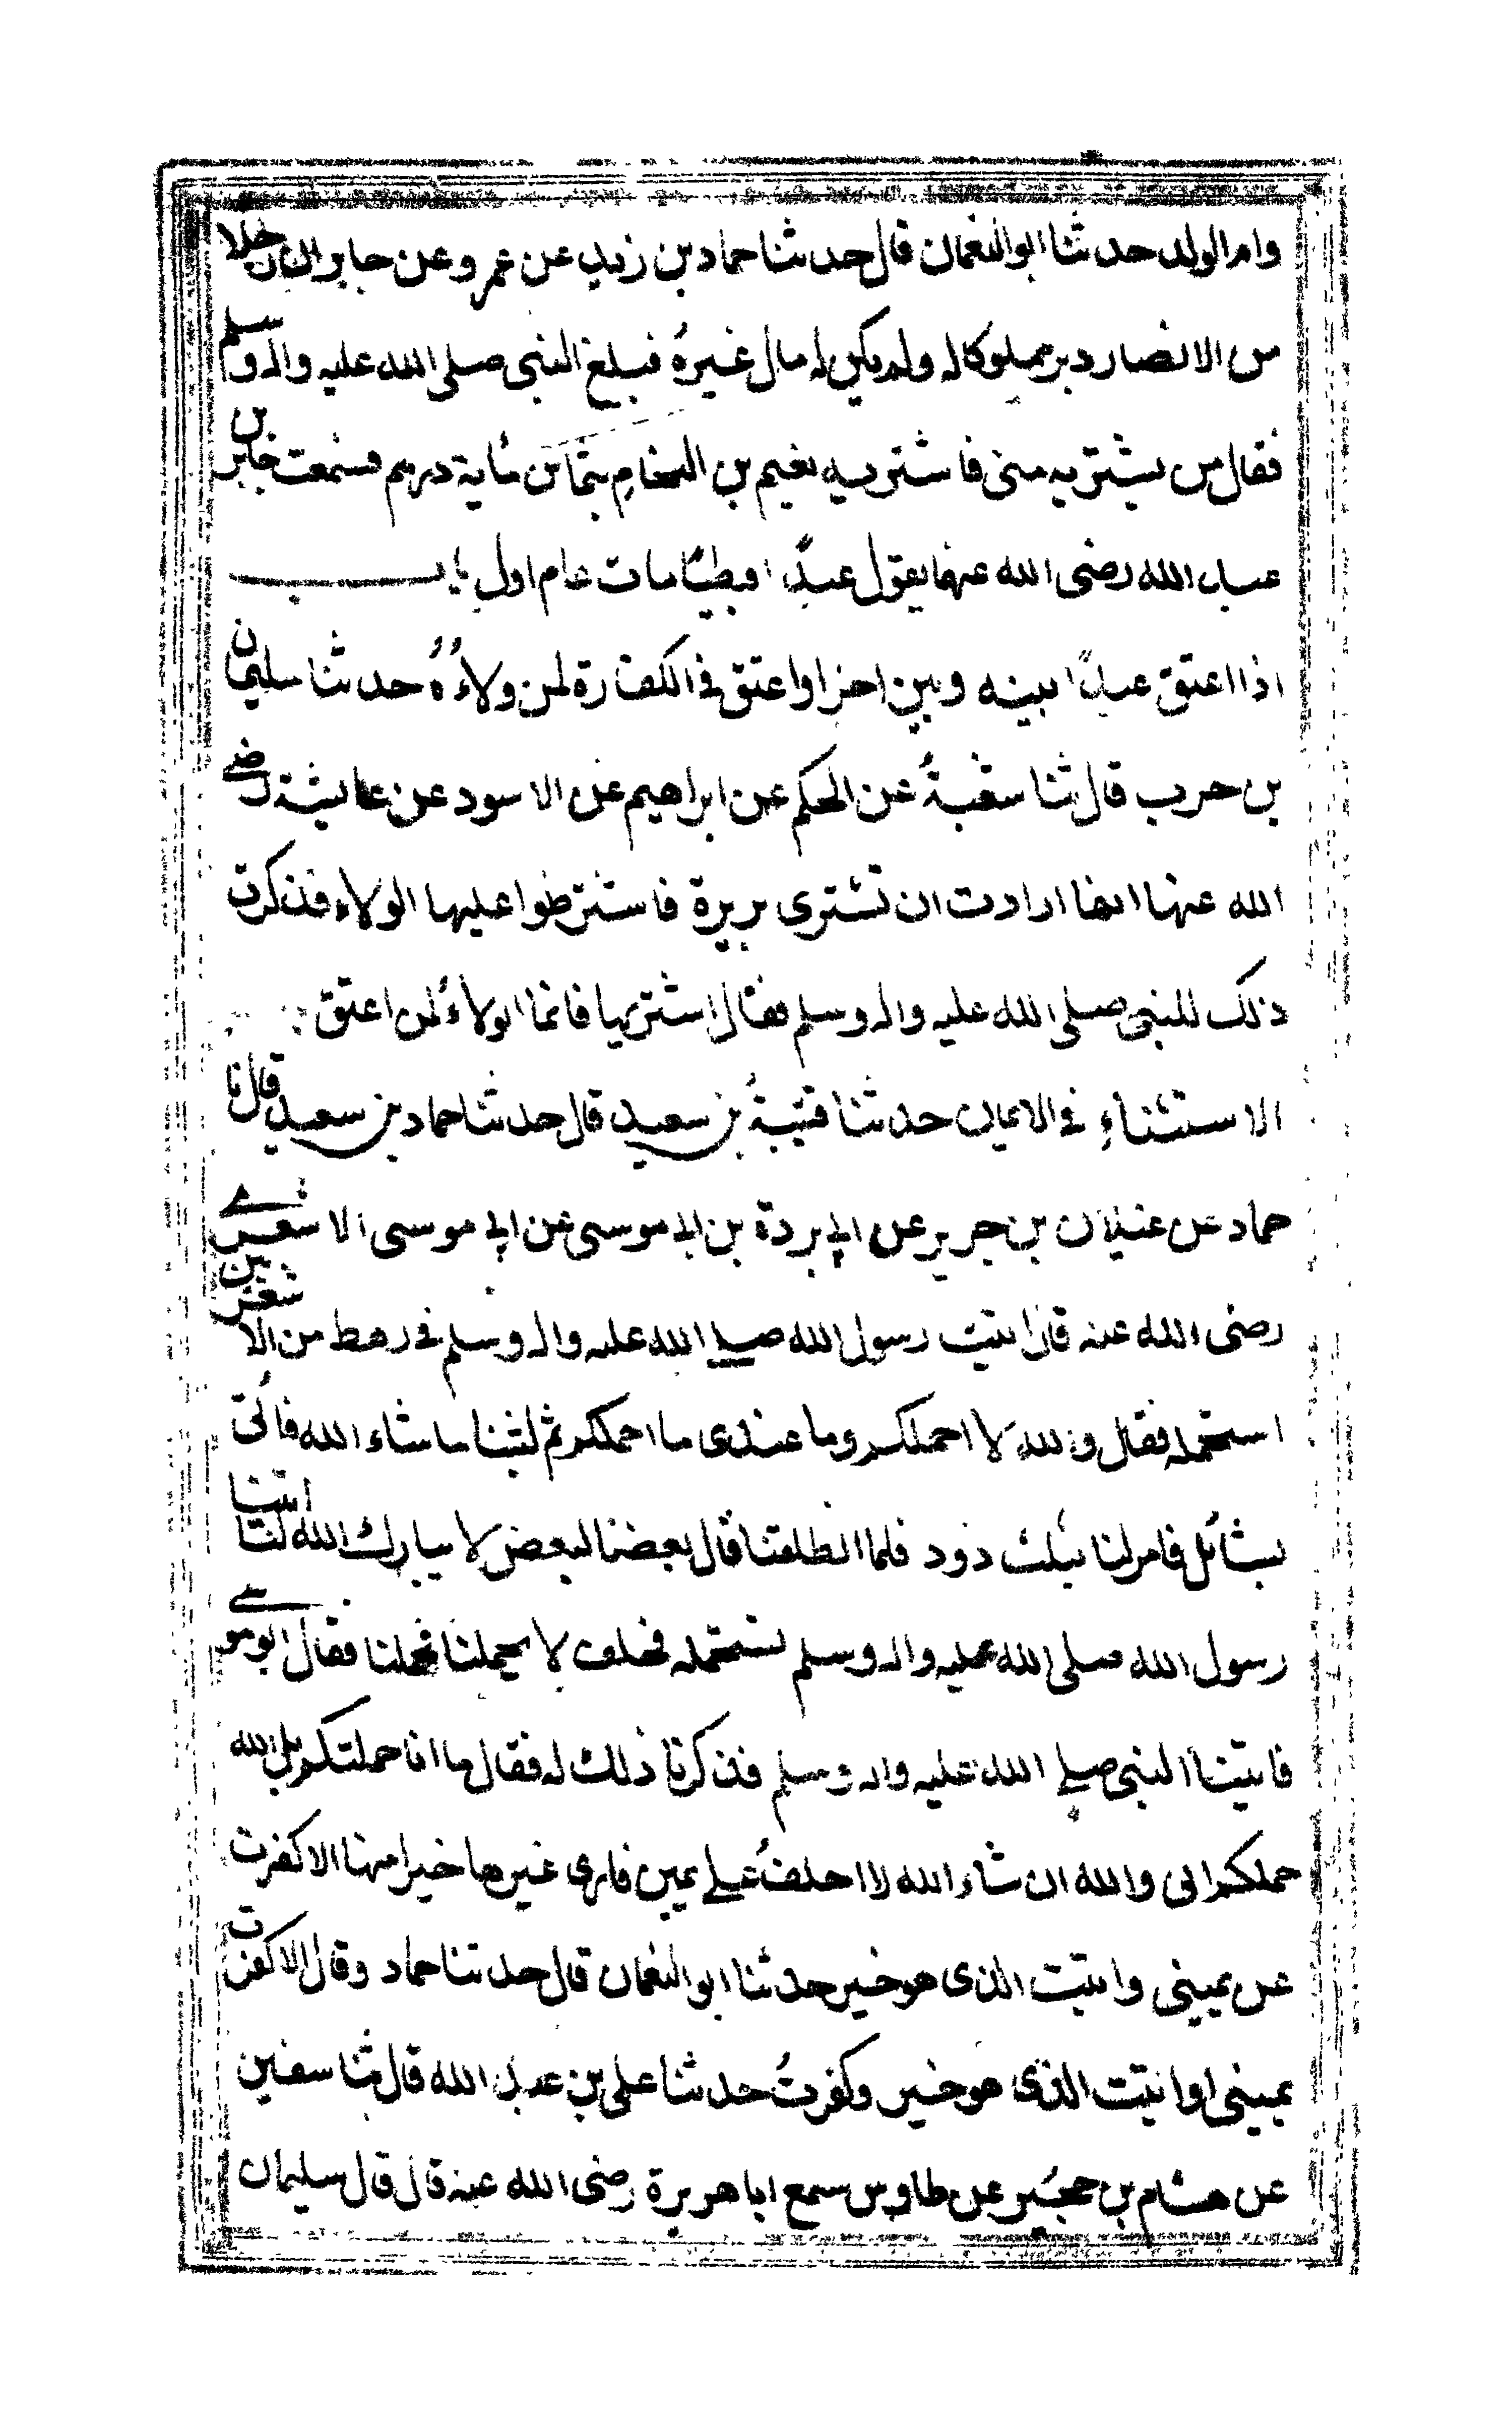 وام الولد حدثنا ابو النعمان قال حدثنا حماد بن زيد عن عمرو عن جابر ان رجلا
من الانصار دبر مملوكا له ولم يكن له مال غيره فبلغ النبي صلى الله عليه واله وسلم
فقال من يشتريه مني فاشتريه نعيم بن النحام بثمان ماية درهم فسمعت جابر بن
عبد الله رضى الله عنهما يقول عبدًا قبطيًا مات عام اول باب
اذا اعتق عبدًا بينه وبين اخر او اعتق في الكفارة لمن ولاؤُهُ حدثنا سليمان
بن حرب قال ثنا شعبةُ عن الحكم عن ابراهيم عن الاسود عن عايشة رضي
الله عنها انها ارادت ان تشترى بريرة فاشترطوا عليها الولاء فذكرت
ذلك للنبي صلى الله عليه واله وسلم فقال اشتريها فانما الولاءُ لمن اعتق
الاستثناءِ في الايمان حدثنا قتيبةُ بن سعيد قال حدثنا حماد بن سعيد قال نا
حماد عن غيلان بن جرير عن ابي بردة بن ابي موسى عن ابي موسى الاشعري
رضى الله عنه قال اتيت رسول الله صلى الله عليه واله وسلم في رهط من الاشعريين
استحمله فقال والله لا احملكم وما عندى ما احملكم ثم لبثنا ما شاء الله فاُتى
بشائل فامر لنا بثلث ذود فلما انطلقنا قال بعضنا لبعض لا يبارك الله لنا اتينا
رسول الله صلى الله عليه واله وسلم نستحمله فحلف لا يحملنا فحملنا فقال ابو موسى
فاتينا النبي صلى الله عليه واله وسلم فذكرنا ذلك له فقال ما انا حملتكم بل الله
حملكم انى والله ان شاء الله لا احلفُ على يمين فارى غيرها خيرا منها الا كفرت
عن يميني واتيت الذى هو خير حدثنا ابو النعمان قال حدثنا حماد وقال الا كفرت
يميني او اتيت الذى هو خير وكفرتُ حدثنا على بن عبد الله قال ثنا سفين
عن هشام بن حجير عن طاوس سمع ابا هريرة رضى الله عنه قال قال سليمان